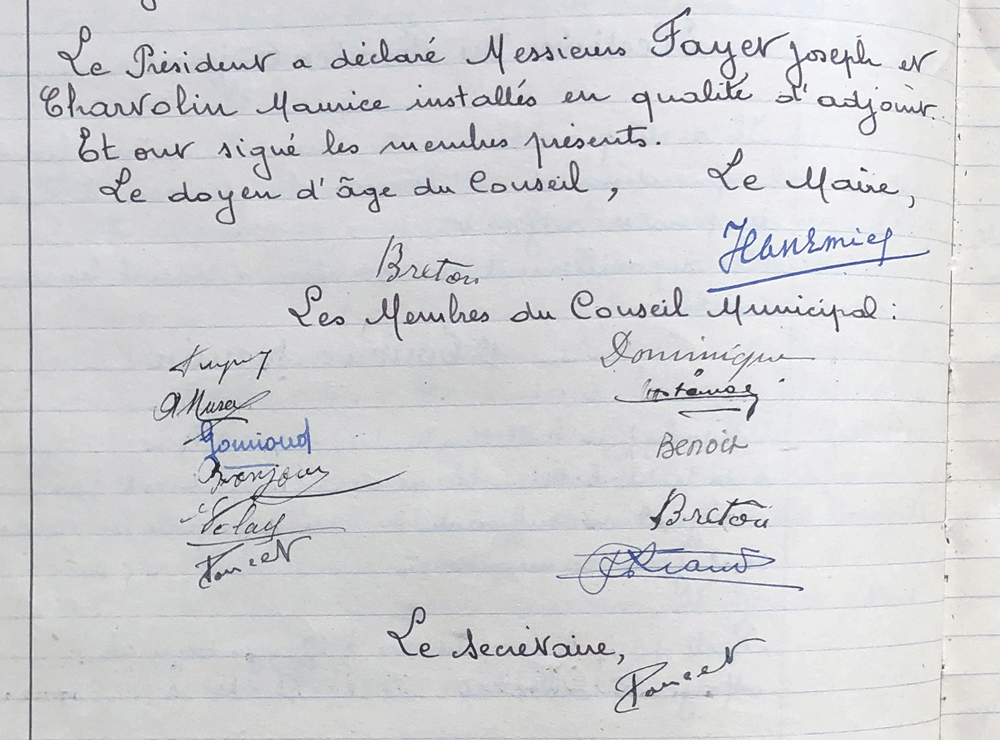 Le Président a déclaré Messieurs Fayet Joseph et
Charvolin Maurice installés en qualité d'adjoint.
Et ont signé les membres présents.
Le doyen d'âge du Conseil, Le Maire,
Breton
Les Membres du Conseil Municipal :
Dominique
Benoit
Bonjour
Breton
Velay
Poncet
Le secrétaire,
Poncet